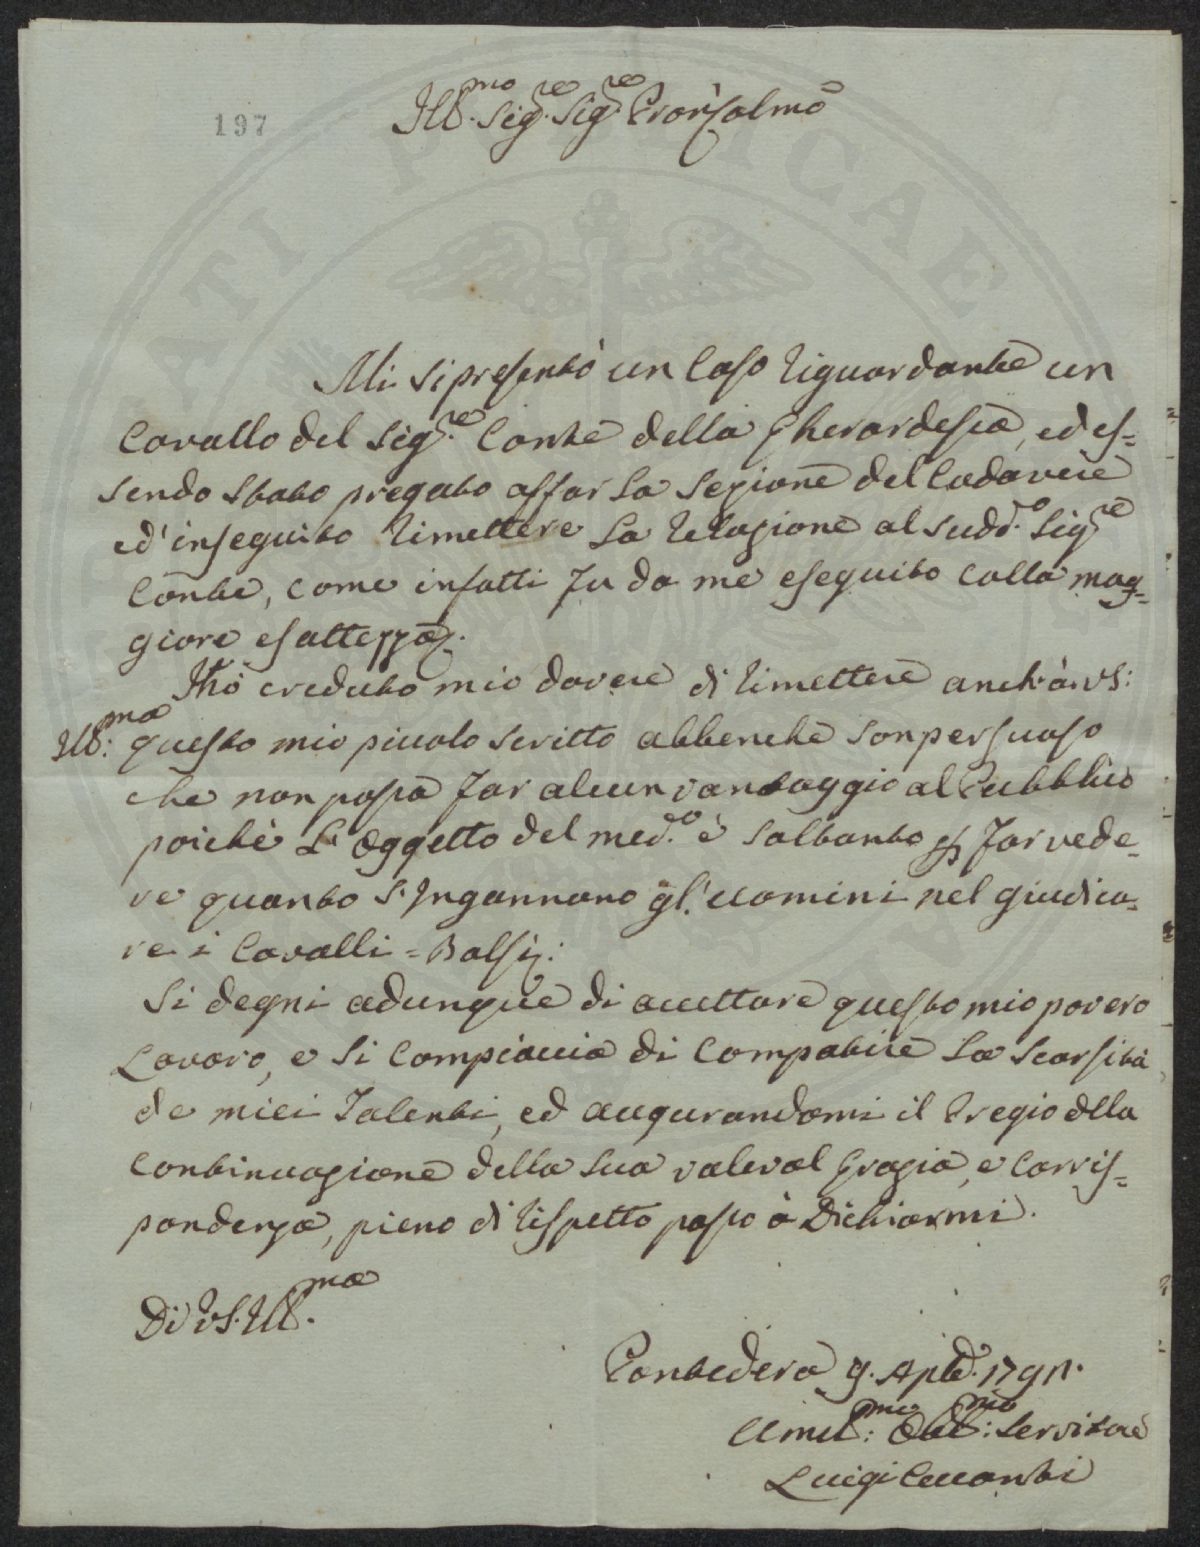 197
Ill.mo Sig.re Sig.re Pron Colmo
Mi si presentò un Caso riguardante un
Cavallo del Sig.re Conte della Gherardesca, ed es=
sendo stato pregato affar la Sezione del Cadavere
ed' inseguito rimettere la relazione al sudd.o Sig.re
Conte, come infatti fu da me eseguito colla mag=
giore esattezza.
Hò creduto mio dovere di rimettere anch' à VS:
Ill:ma questo mio piccolo scritto abbenche son persuaso
che non possa far alcun vantaggio al Pubblico
poichè L' Oggetto del med.o è soltanto p far vede=
re quanto s' Ingannano gl' uomini nel giudica=
re i Cavalli = Bolsi.
Si degni adunque di accettare questo mio povero
Lavoro, e si Compiaccia di Compatire la scarsità
de miei Talenti, ed augurandomi il Pregio della
Continuazione della sua valeval Grazia, e Corris=
pondenza, pieno di rispetto passo à Dichiarmi.
Di VS. Ill.ma
Pontedera 9. Aple. 1791.
Umil:mo Obl:mo Servitore
Luigi